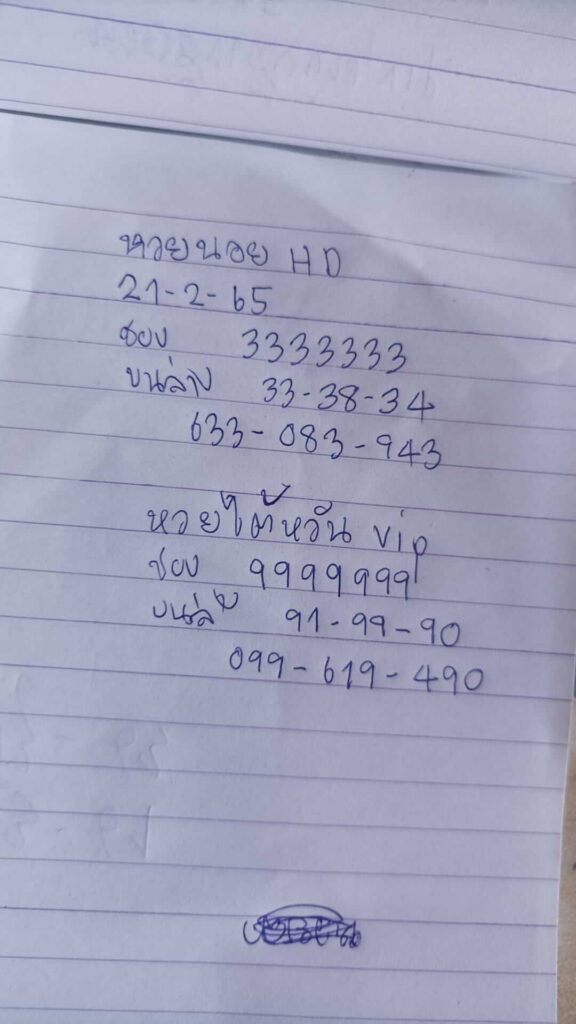 หวยนอย HD
21-2-65
ช่อง 3333333
บนล่าง 33-38-34
633-083-943
หวยไต้หวัน vip
ช่อง 9999999
บนล่าง 91-99-90
099-619-490